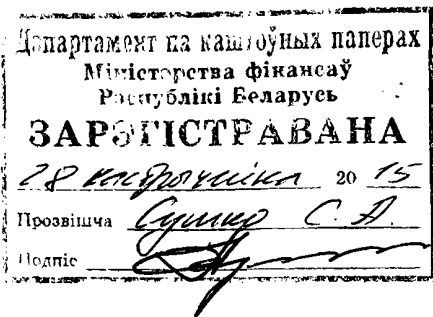 Дэпартамент па каштоўных паперах
Міністэрства фінансаў
Рэспублікі Беларусь
ЗАРЭГІСТРАВАНА
28 кастрычніка 2015
Прозвішча Сушко С. А.
Подпіс